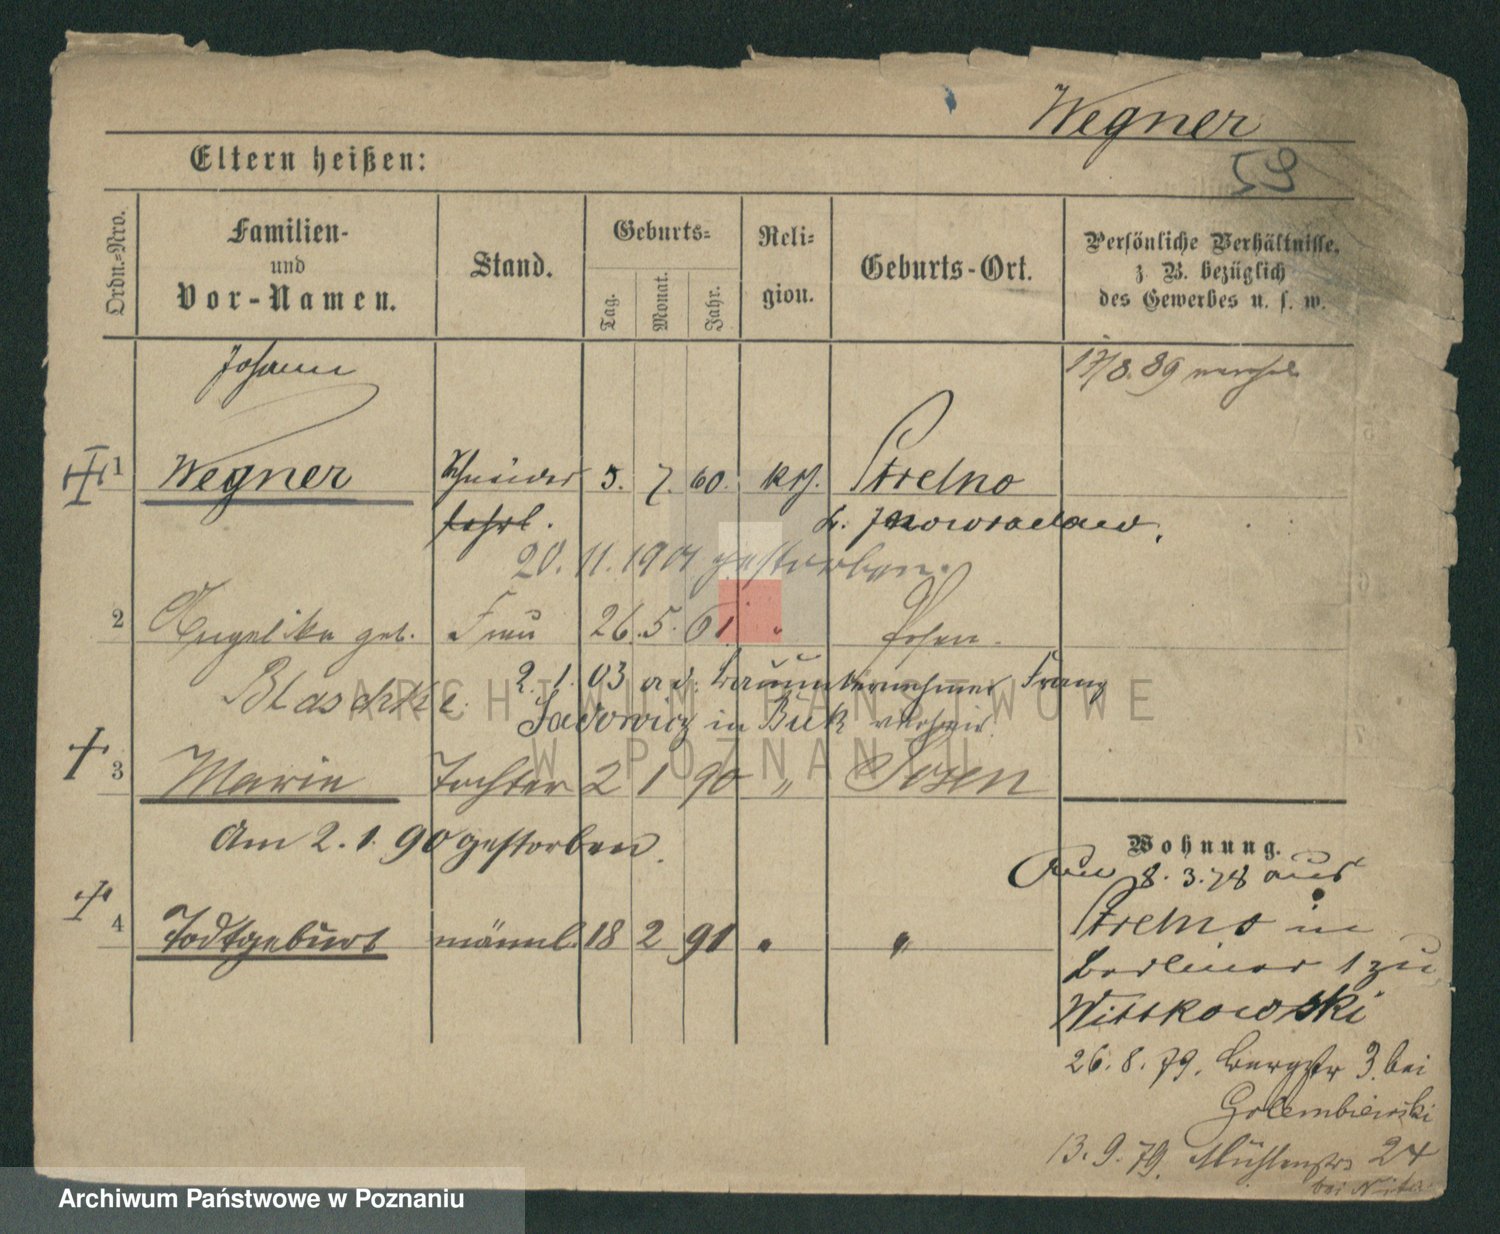 Wegner
59
Eltern heißen:
Ordn.=Nro.
Familien-
und
Vor-Namen.
Stand.
Geburts=
Tag.
Monat.
Jahr.
Reli=
gion.
Geburts-Ort.
Persönliche Verhältnisse,
z. B. bezüglich
des Gewerbes u. s. w.
Johann
17/8. 89
1 Wegner Schneider 5. 7. 60. kth. Strelno
lehrl. Kr. Inowraclaw.
20. 11. 1901 gestorben.
2 Angelika geb. Frau 26. 5. 61. " Posen.
Blaschke.
2. 1. 03 a. d. Bauunternehmer Franz
Sadowicz in Buk verheir.
3 Marie Tochter 2 1 90 " Posen
Am 2. 1. 90 gestorben.
4 Todtgeburt männl. 18 2 91 " "
Wohnung.
Am 8. 3. 78 aus
Strelno in
Berliner 1 zu
Wittkowski
26. 8. 79. Bergstr 3. bei
Golembiewski
13. 9. 79. Mühlenstr 24
bei
ARCHIWUM PAŃSTWOWE
W POZNANIU
Archiwum Państwowe w Poznaniu